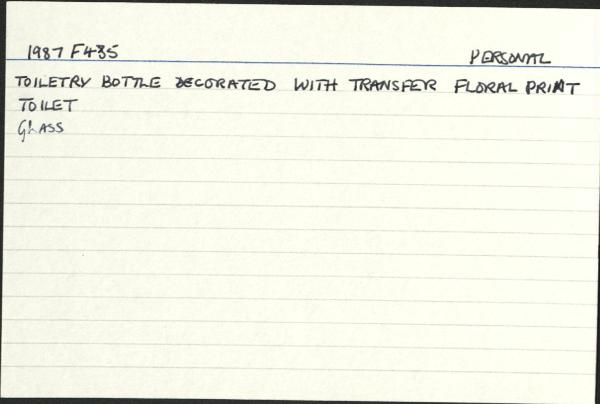 1987 F435 PERSONAL
TOILETRY BOTTLE DECORATED WITH TRANSFER FLORAL PRINT
TOILET
GLASS